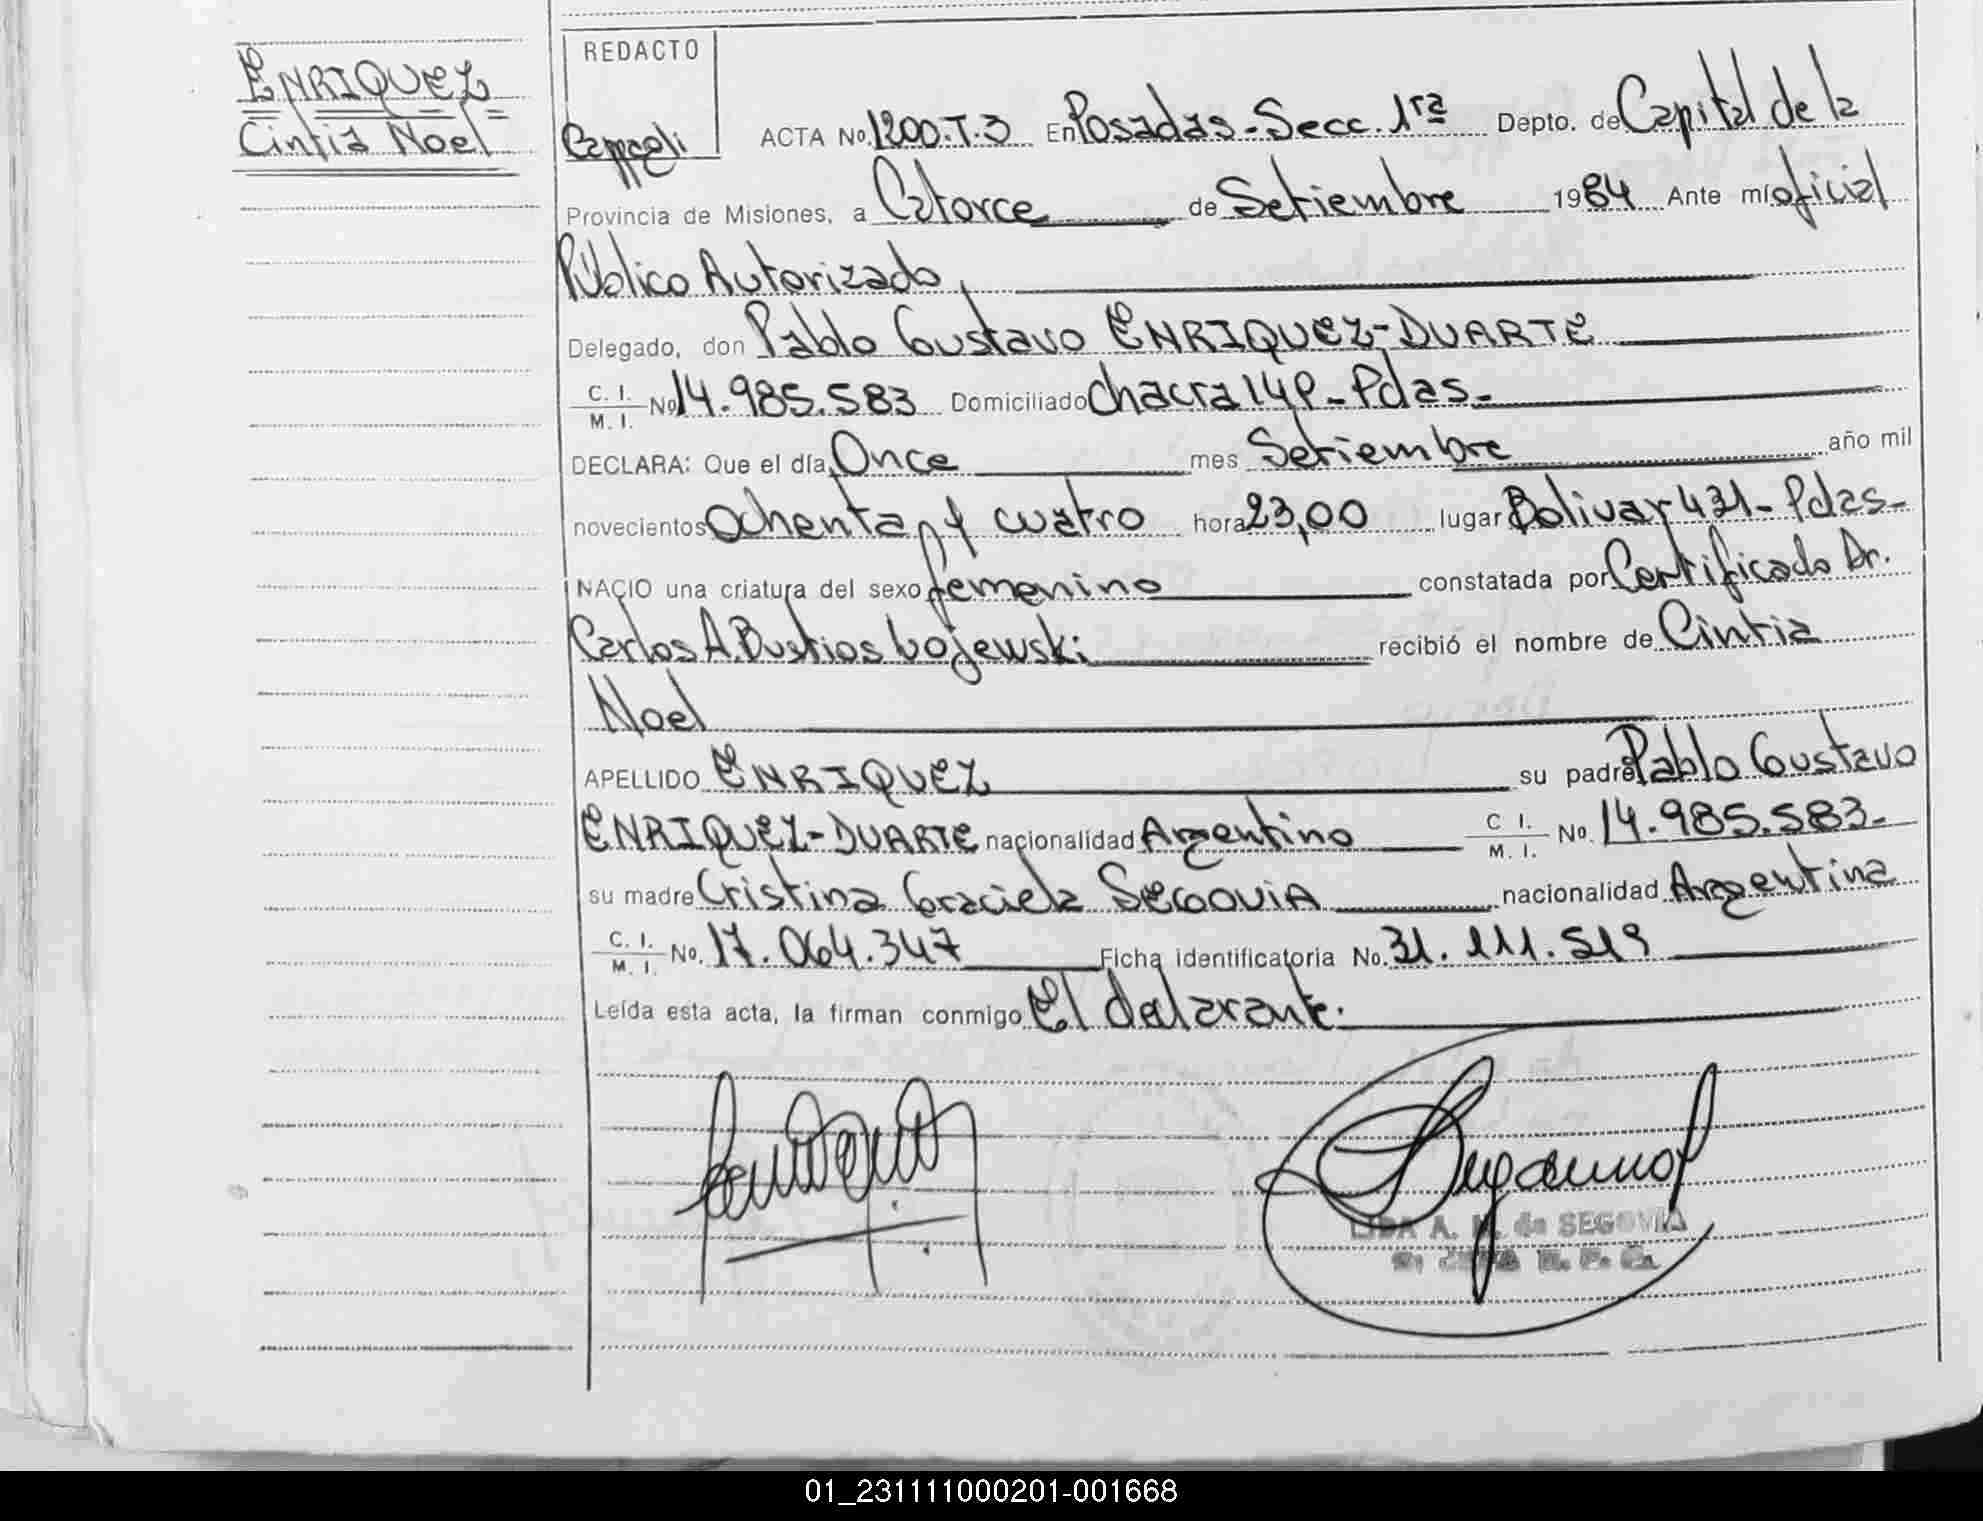 ENRIQUEZ
Cintia Noel
REDACTO
ACTA No. 1200.T.3 En Posadas - Secc. 1ra Depto. de Capital de la
Provincia de Misiones, a Catorce de Setiembre 1984 Ante mí oficial
Público Autorizado,
Delegado, don Pablo Gustavo ENRIQUEZ-DUARTE
C. I. M. I. No 14.985.583 Domiciliado Chacra 149 - Pdas.-
DECLARA: Que el día Once mes Setiembre año mil
novecientos Ochenta y cuatro hora 23,00 lugar Bolivar 431 - Pdas-
NACIO una criatura del sexo femenino constatada por Certificado Dr.
Carlos A. Bustios Lojewski recibió el nombre de Cintia
Noel
APELLIDO ENRIQUEZ su padre Pablo Gustavo
ENRIQUEZ-DUARTE nacionalidad Argentino C I. M. I. No. 14.985.583.-
su madre Cristina Graciela SEGOVIA nacionalidad Argentina
C. I. M. I. No. 17.064.347 Ficha identificatoria No. 31.111.519
Leída esta acta, la firman conmigo El delarante.
LIDA A. M. de SEGOVIA
01_231111000201-001668